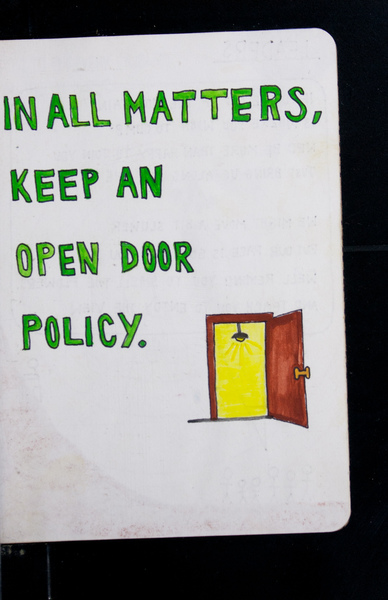 IN ALL MATTERS,
KEEP AN
OPEN DOOR
POLICY.